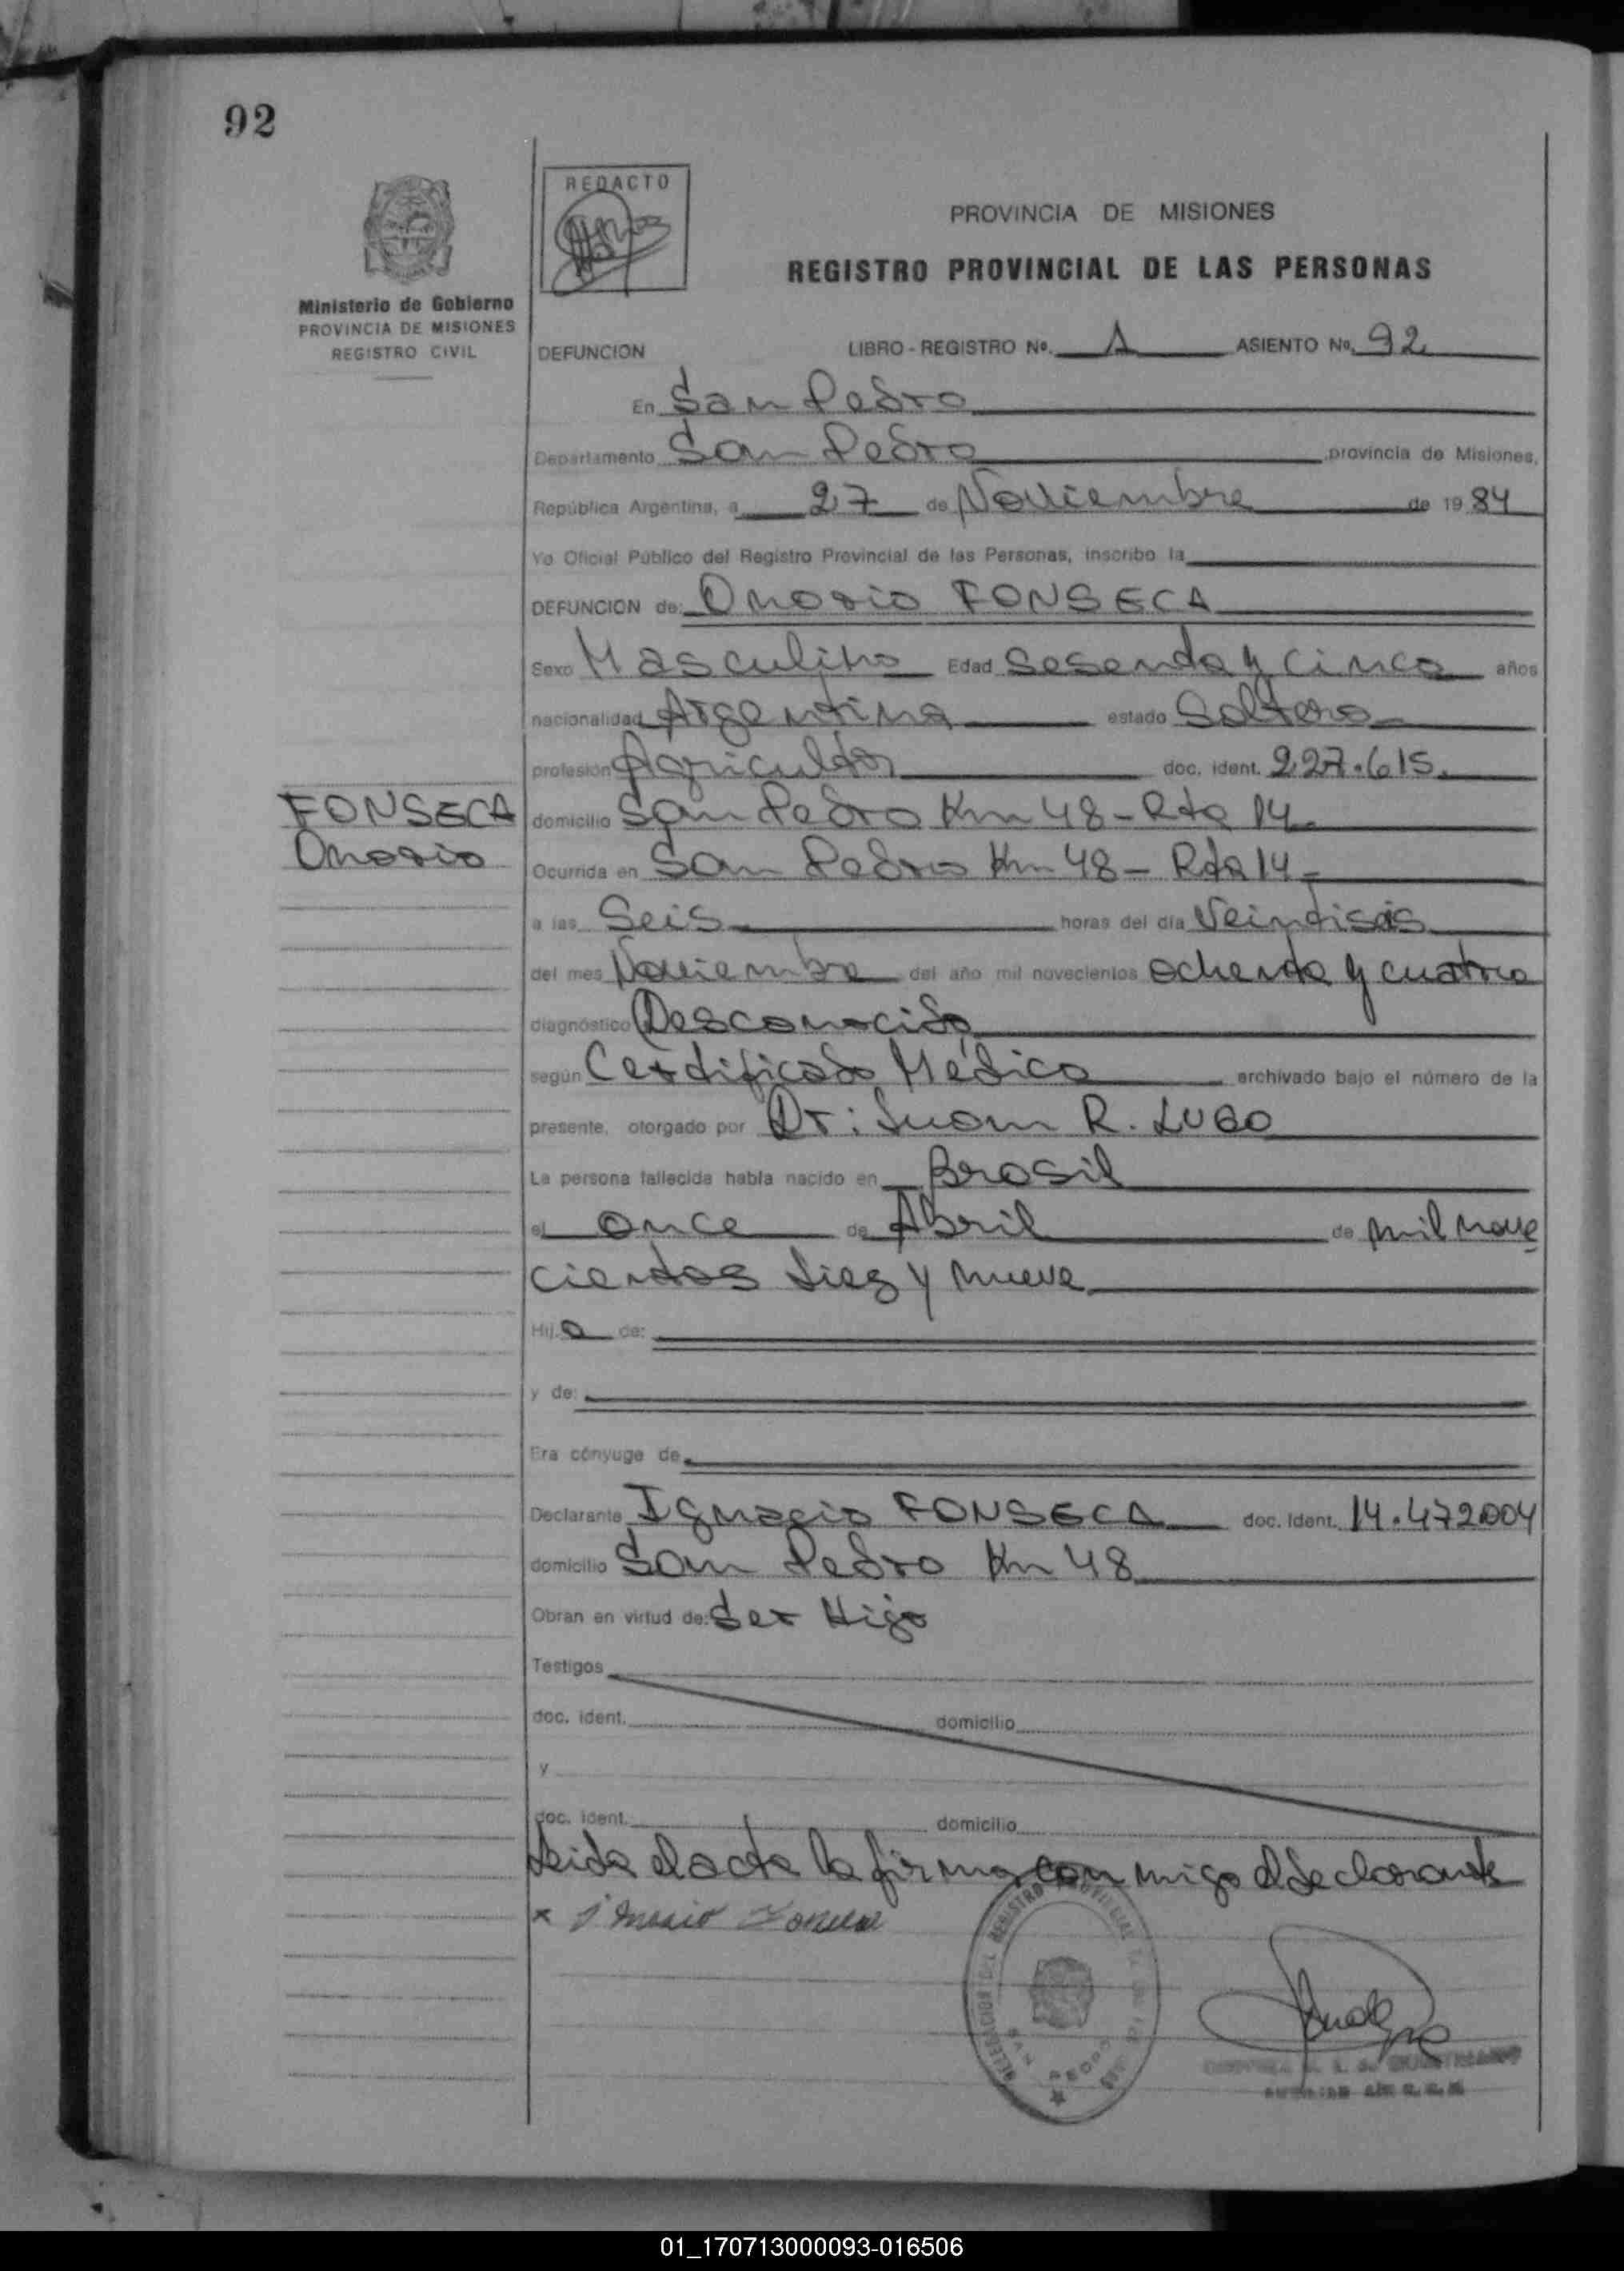 92
REDACTO
Ministerio de Gobierno
PROVINCIA DE MISIONES
REGISTRO CIVIL
PROVINCIA DE MISIONES
REGISTRO PROVINCIAL DE LAS PERSONAS
DEFUNCION LIBRO - REGISTRO Nº. 1 ASIENTO Nº. 92
En San Pedro
Departamento San Pedro provincia de Misiones,
República Argentina, a 27 de Noviembre de 1984
Yo Oficial Público del Registro Provincial de las Personas, inscribo la
DEFUNCION de: Onorio FONSECA
Sexo Masculino Edad Sesenta y cinco años
nacionalidad Argentina estado Soltero
profesión Agricultor doc. ident. 227.615.
FONSECA
Onorio
domicilio San Pedro Km 48 - Rta 14
Ocurrida en San Pedro Km 48 - Rta 14 -
a las Seis horas del día Veintiseis
del mes Noviembre del año mil novecientos ochenta y cuatro
diagnóstico Desconocido
según Certificado Médico archivado bajo el número de la
presente, otorgado por Dr: Juan R. LUGO
La persona fallecida había nacido en Brasil
el once de Abril de mil nove
cientos diez y nueve
Hij o de:
y de:
Era cónyuge de
Declarante Ignacio FONSECA doc. ident. 14.472004
domicilio San Pedro Km 48
Obran en virtud de: Ser Hijo
Testigos
doc. ident. domicilio
y
doc. ident. domicilio
Leida el acta la firma con migo el declarante
x
DELEGACION DEL REGISTRO PROVINCIAL DE LAS PERSONAS
SAN PEDRO
01_170713000093-016506